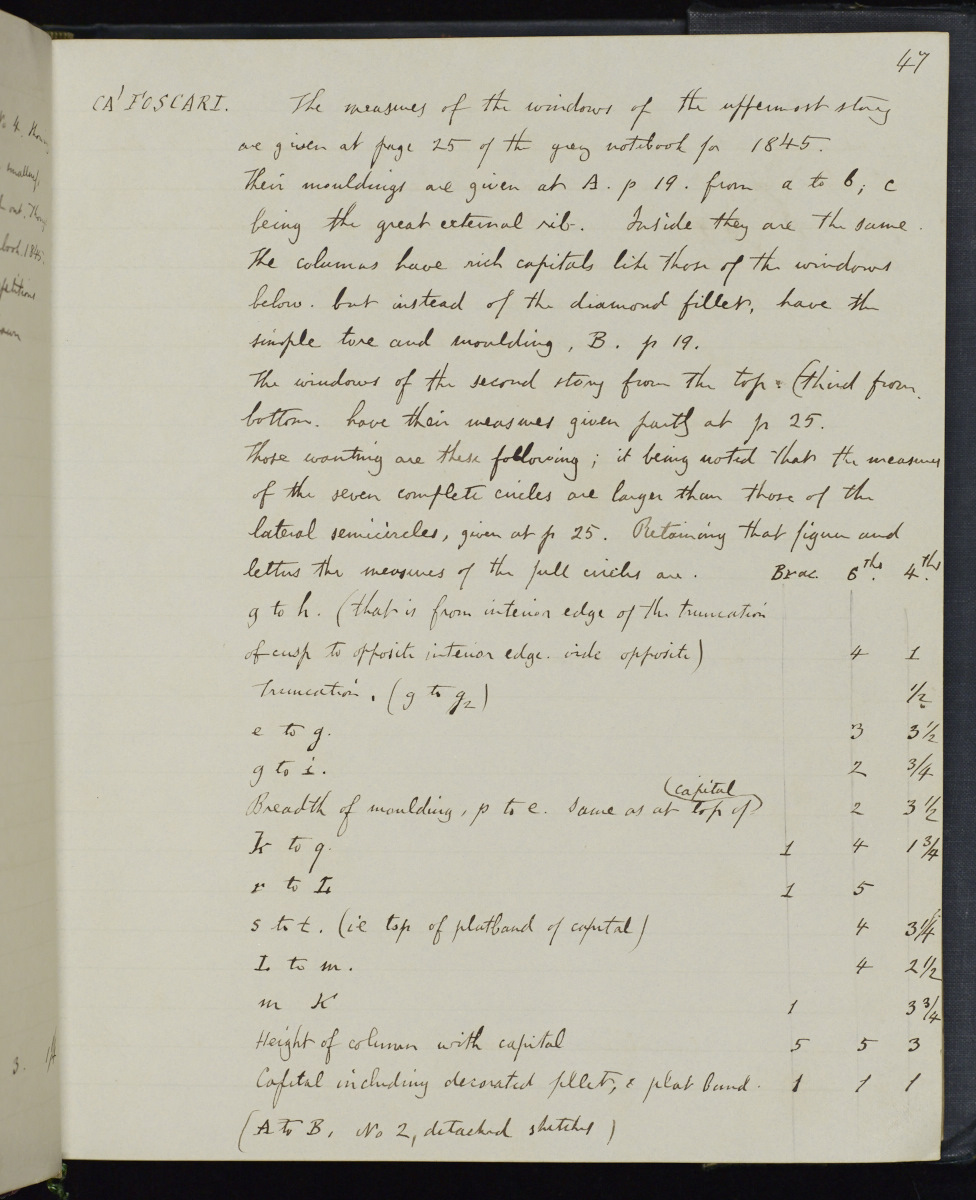 47
CA' FOSCARI. The measures of the windows of the uppermost story
are given at page 25 of the grey notebook for 1845.
Their mouldings are given at A. p 19. from a to b; c
being the great external rib. Inside they are the same.
The columns have rich capitals like those of the windows
below. but instead of the diamond fillet, have the
simple tore and moulding, B. p 19.
The windows of the second story from the top. (third from
bottom. have their measures given partly at p 25.
Those wanting are these following; it being noted that the measures
of the seven complete circles are larger than those of the
lateral semicircles, given at p 25. Retaining that figure and
letters the measures of the full circles are. Brac. 6ths. 4ths.
g to h. (that is from interior edge of the truncation
of cusp to opposite interior edge. vide opposite) 4 1
Truncation. (g to g2) 1/2
e to g. 3 3 1/2
g to i. 2 3/4
(capital)
Breadth of moulding, p to e. Same as at top of 2 3 1/2
K to q. 1 4 1 3/4
r to L 1 5
s to t. (ie top of platband of capital) 4 3 1/4
L to m. 4 2 1/2
m K 1 3 3/4
Height of column with capital 5 5 3
Capital including decorated fillet, & plat band. 1 1 1
(A to B, No 2, detached sketches)
smallest,
book 1845.
3.